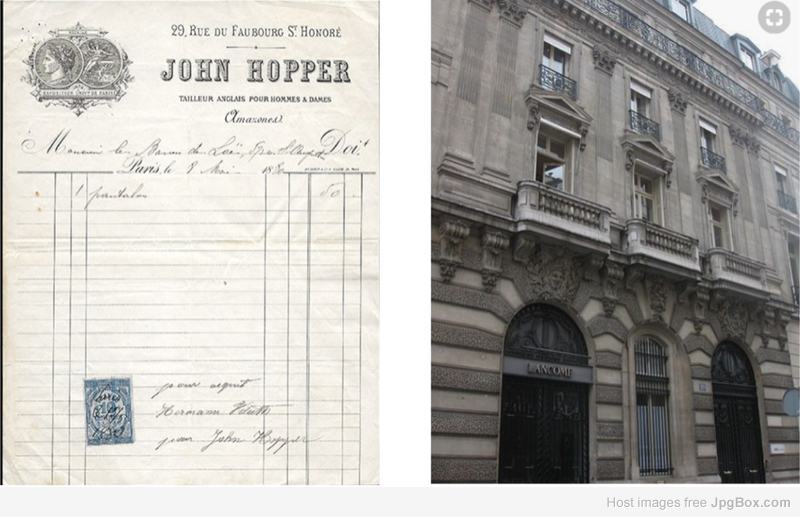 29, Rue du Faubourg St Honoré
JOHN HOPPER
TAILLEUR ANGLAIS POUR HOMMES & DAMES
(Amazones)
EXPOSITION UNIVlle DE PARIS
Monsieur le Baron de Doit
Paris, le 8 Mai 188
1 pantalon 50
pour acquit
Hermann
pour John Hopper
LANCOME
Host images free JpgBox.com